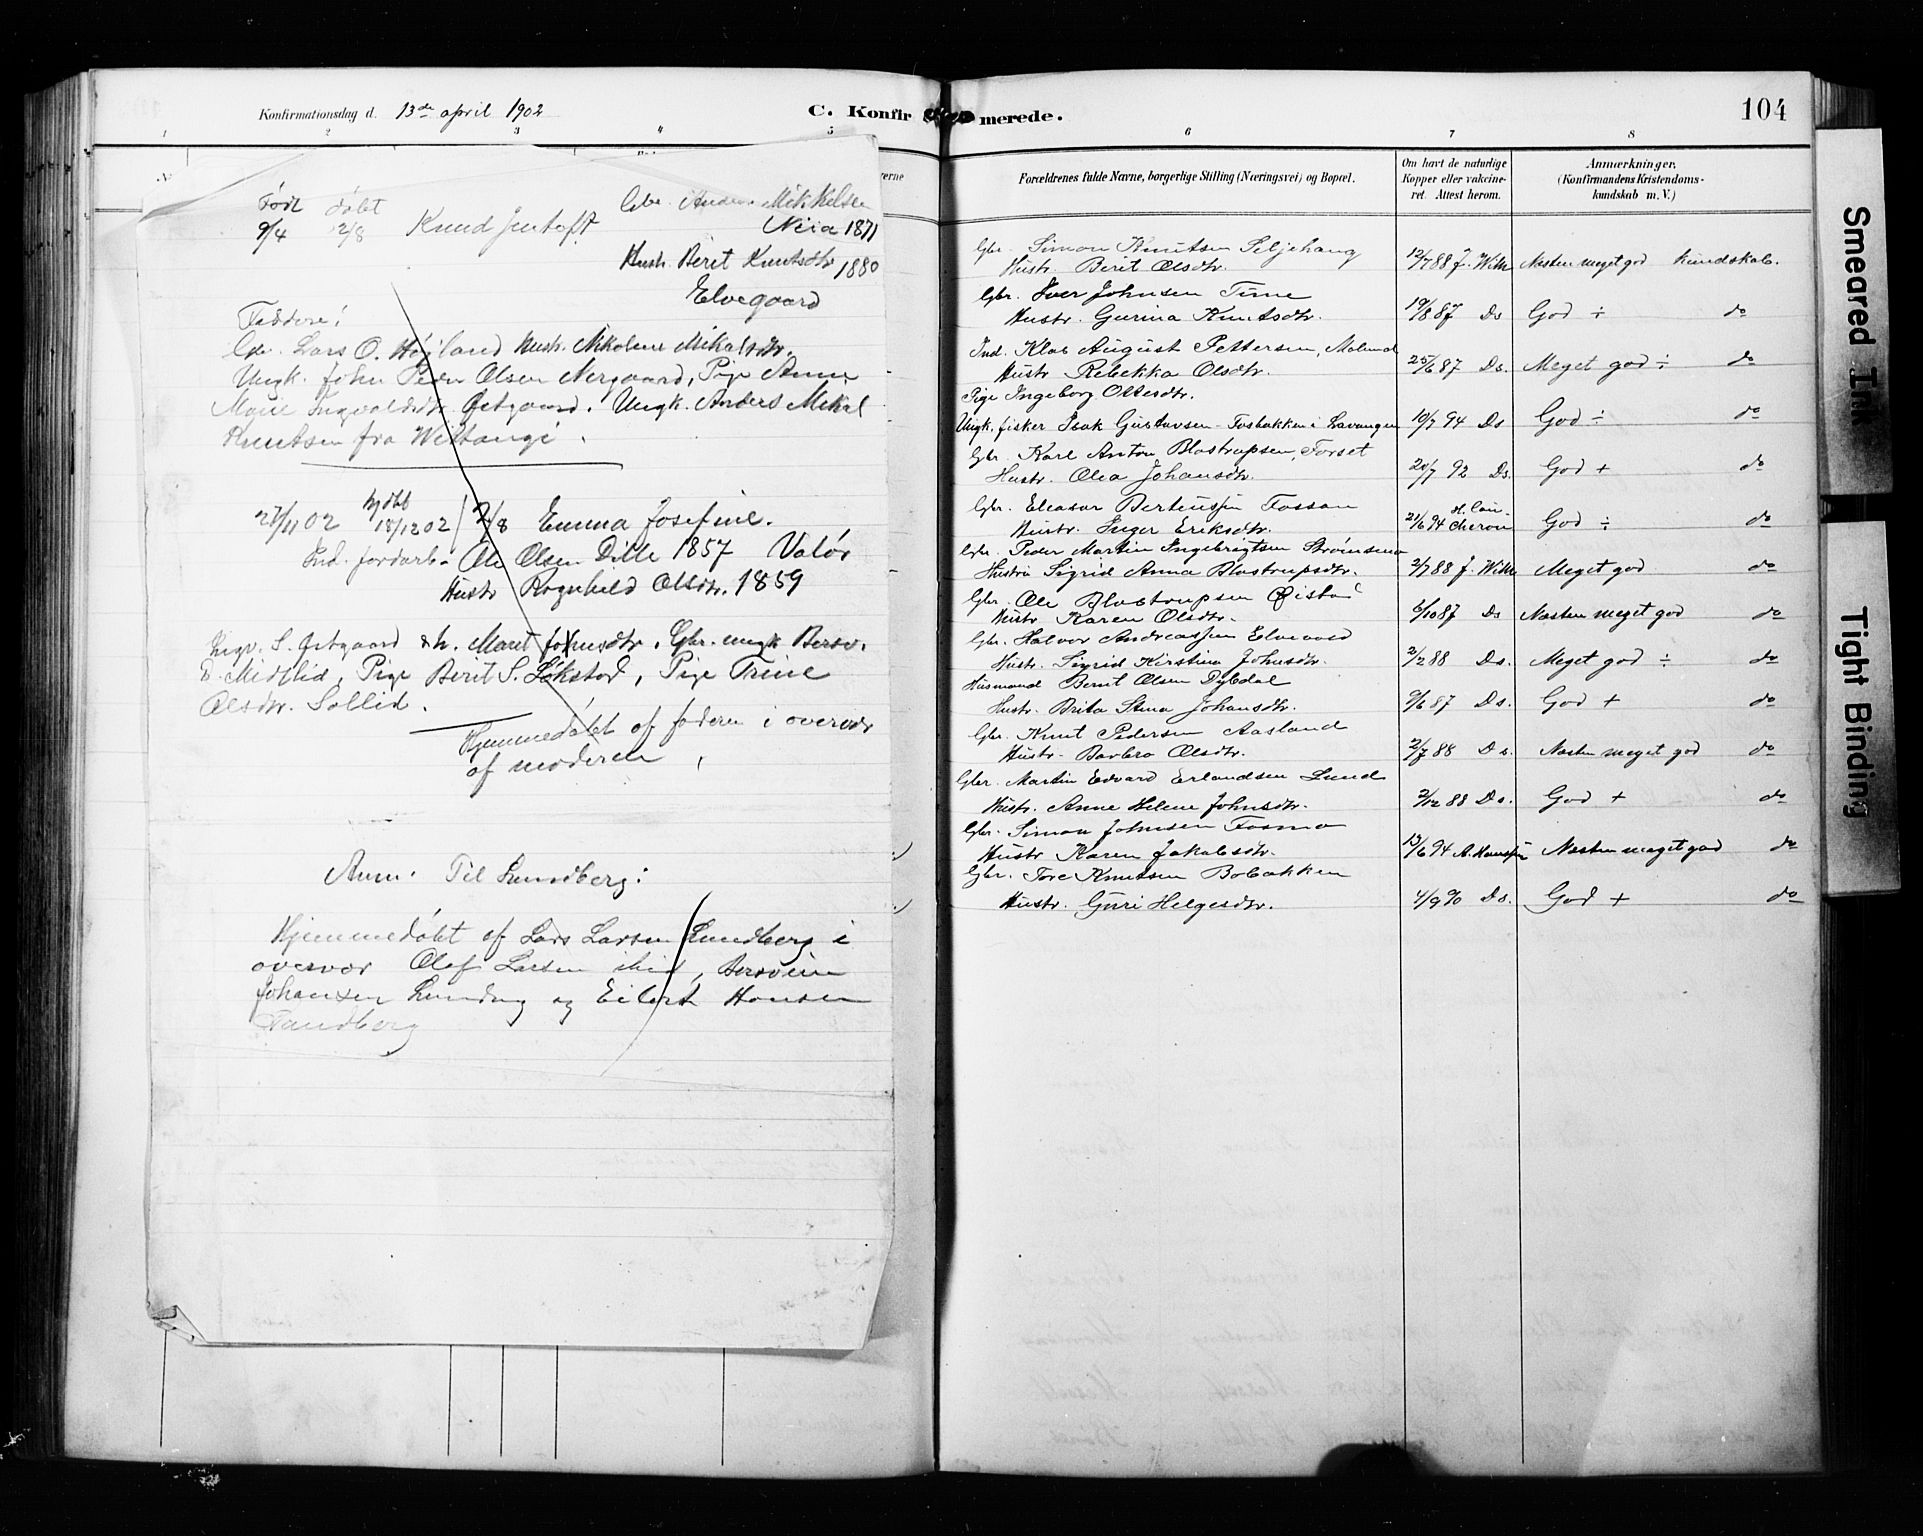 Konfirmationsdag d. 13de april 1902
C. Konfir
1 2 3 4 5
født døbt
9/4 2/8 Knud Jentoft
Gbr. Anders Mikkelsen
1871
Hustr. Berit Knutsdtr 1880
Elvegaard
Faddere:
Gbr. Lars O. Høgland Hustr. Nikoline Mikalsdtr.
Ungk. John Peder Olsen Nergaard, Pige Anne
Marie Ingvaldsdtr Østgaard. Ungk. Anders Mikal
Knutsen fra
27/11 02 hjdbt 18/12 02 2/8 Emma Josefine.
Ind. jordarb. Ole Olsen Dille 1857
Hustr Ragnhild Olsdtr. 1859
Ingv. S. Østgaard & h. Maret Johnsdtr. Gbr. ungk Bersv.
E. Midtlid, Pige Berit S. Løkstad, Pige Trine
Olsdtr. Sollid.
Hjemmedøbt af faderen i overvær
af moderen
Anm. Til Lundberg:
Hjemmedøbt af Lars Larsen Lundberg i
overvær Olaf Larsen ibid, Bersvein
Johansen Lundberg og Eilert Hansen
Tandberg
merede.
104
6 7 8
Forældrenes fulde Navne, borgerlige Stilling (Næringsvei) og Bopæl.
Om havt de naturlige Kopper eller vakcineret. Attest herom.
Anmærkninger. (Konfirmandens Kristendomskundskab m. V.)
Gbr. Simon Knutsen Seljehaug
Hustr. Berit Olsdtr. 12/7 88 J. Wilh Næsten meget god kundskab.
Gbr. Iver Johnsen Time
Hustr. Gurina Knutsdtr. 19/8 87 Ds God ÷ do
Ind. Klas August Pettersen, Molund
Hustr Rebekka Olsdtr. 25/6 87 Ds. Meget god ÷ do
Pige Ingeborg Ottesdtr.
Ungk. fisker Isak Gustavsen Fosbakken i Lavangen 10/7 94 Ds God ÷ do
Gbr. Karl Anton Blastrupsen, Forset
Hustr. Olea Johansdtr. 20/7 92 Ds. God + do
Gbr. Eleasar Berteussen Fossan
Hustr. Inger Eriksdtr. 21/6 94 God ÷ do
Gbr. Peder Martin Ingebrigtsen Strømsmo
Hustru Sigrid Anna Blastrupsdtr. 2/7 88 J. Wilh Meget god do
Gbr. Ole Blastrupsen
Hustr Karen Olsdtr. 6/10 87 Ds Næsten meget god do
Gbr. Halvor Andreassen Elvevold
Hustr. Sigrid Kirstina Johnsdtr. 2/2 88 Ds. Meget god ÷ do
Husmand Bernt Olsen Dybdal
Hustr. Brita Stina Johansdtr. 9/6 87 Ds. God + do
Gbr. Knut Pedersen Aasland
Hustr. Barbro Olsdtr. 2/7 88 Ds. Næsten meget god do
Gbr. Martin Edvard Erlandsen Lund
Hustr. Anne Helene Johnsdtr. 2/12 88 Ds. God + do
Gbr. Simon Johnsen Fosmo
Hustr Karen Jakobsdtr. 13/6 94 A. Hanssen Næsten meget god do
Gbr. Tore Knutsen Bobakken
Hustr. Guri Helgesdtr. 4/9 90 Ds. God + do
Smeared Ink
Tight Binding